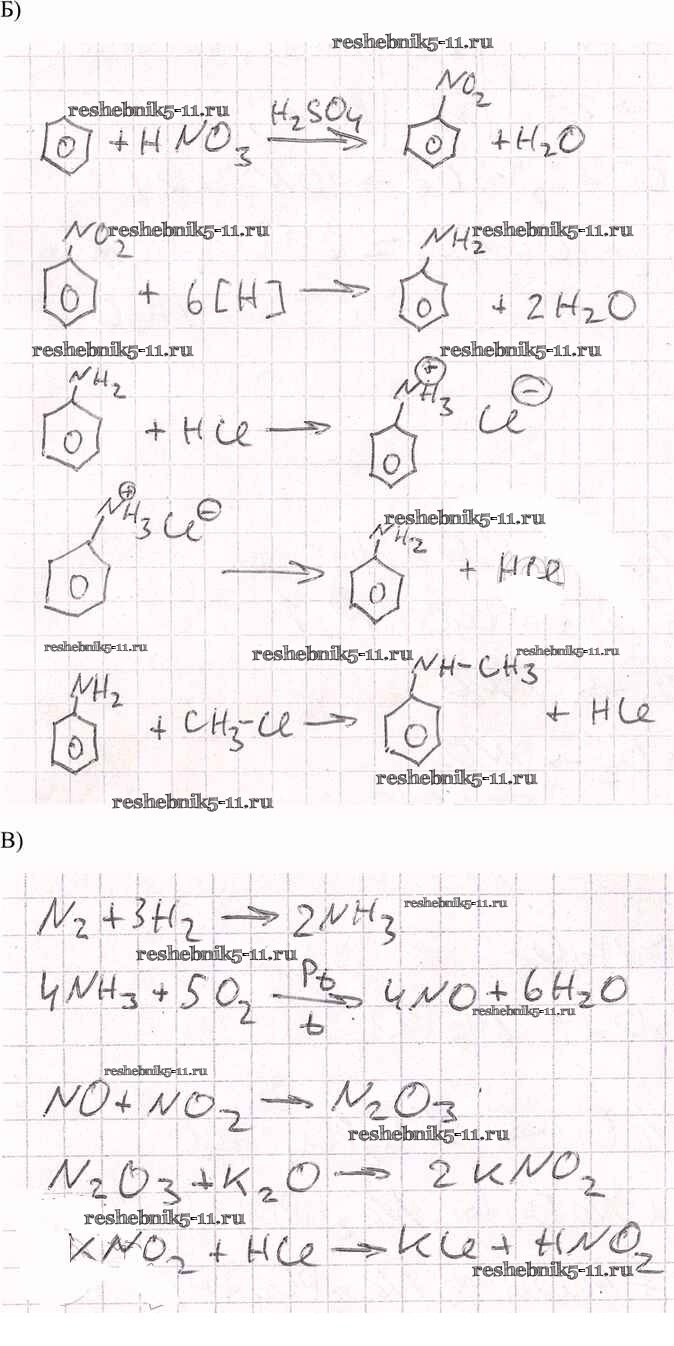 Б)
reshebnik5-11.ru
NO₂
reshebnik5-11.ru
+ HNO₃ H₂SO₄ → + H₂O
NO₂ reshebnik5-11.ru NH₂ reshebnik5-11.ru
+ 6[H] → + 2H₂O
reshebnik5-11.ru reshebnik5-11.ru
NH₂ NH₃ ⊕ Cl ⊖
+ HCl →
NH₃ ⊕ Cl ⊖ reshebnik5-11.ru
NH₂
→ + HCl
reshebnik5-11.ru reshebnik5-11.ru reshebnik5-11.ru
NH₂ NH-CH₃
+ CH₃-Cl → + HCl
reshebnik5-11.ru
reshebnik5-11.ru
В)
N₂ + 3H₂ → 2NH₃ reshebnik5-11.ru
reshebnik5-11.ru
4NH₃ + 5O₂ Pt → t 4NO + 6H₂O
reshebnik5-11.ru
reshebnik5-11.ru
NO + NO₂ → N₂O₃
reshebnik5-11.ru
N₂O₃ + K₂O → 2KNO₂
reshebnik5-11.ru
KNO₂ + HCl → KCl + HNO₂
reshebnik5-11.ru